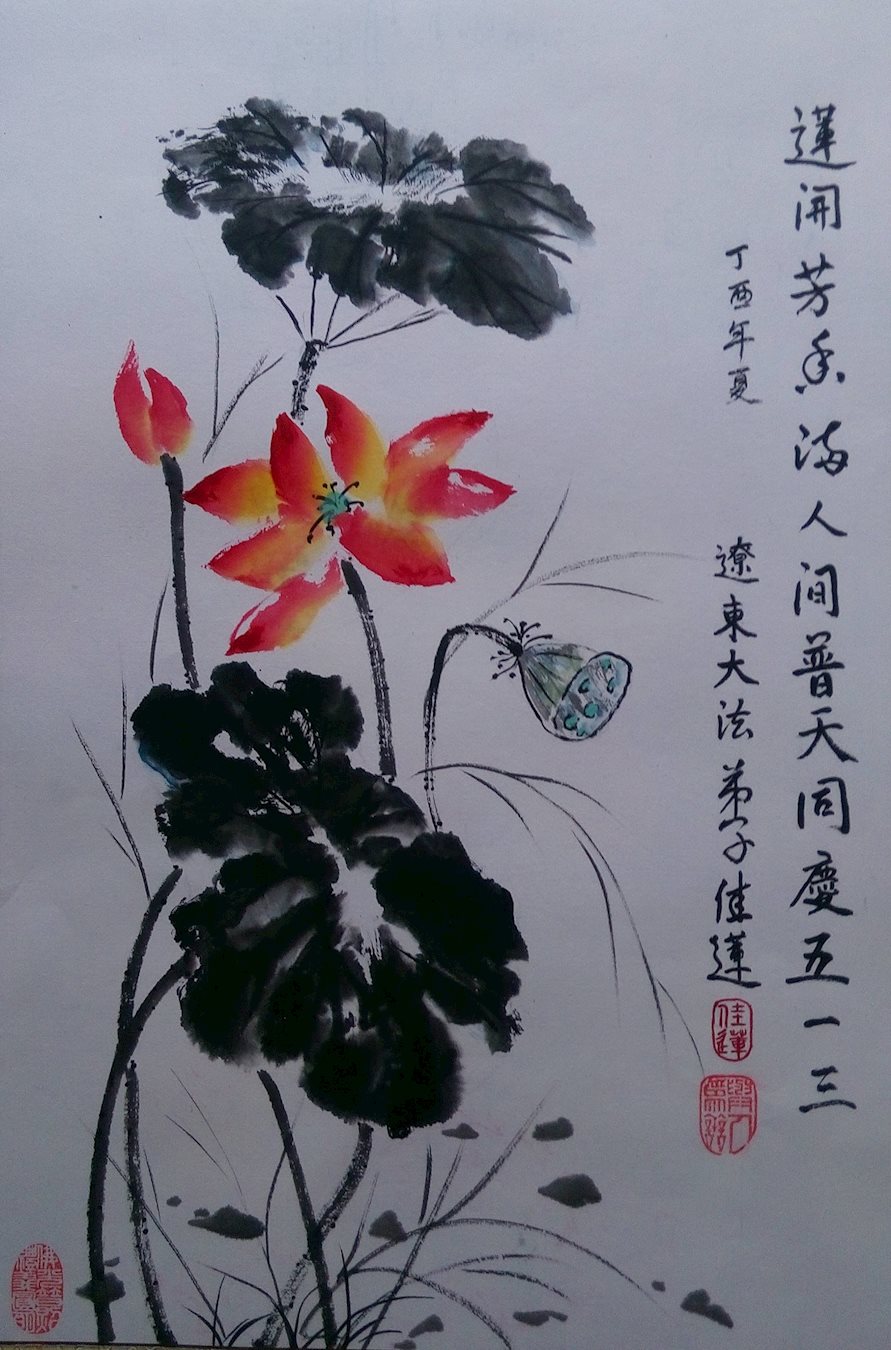 蓮開芳香满人间普天同慶五一三
丁酉年夏
遼東大法弟子佳蓮
佳蓮